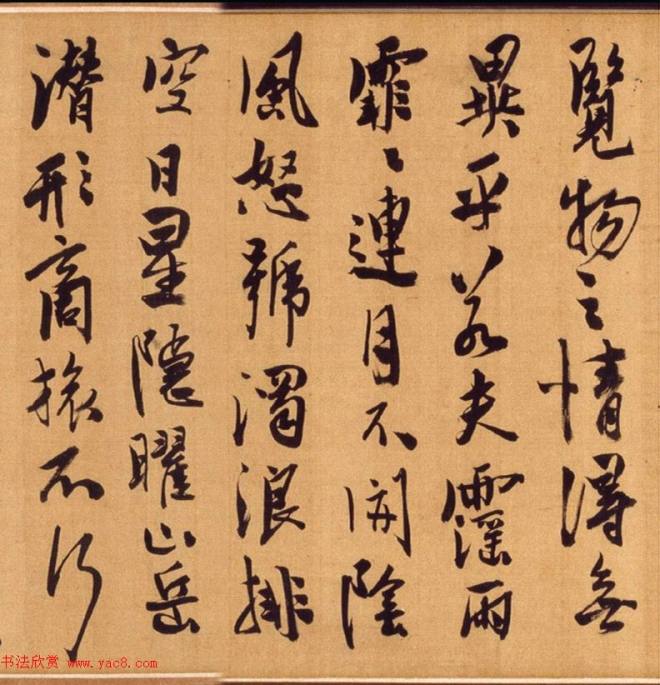 覽物之情得無
異乎若夫霪雨
霏〻連月不開陰
風怒號濁浪排
空日星隱曜山岳
潛形商旅不行
书法欣赏 www.yac8.com